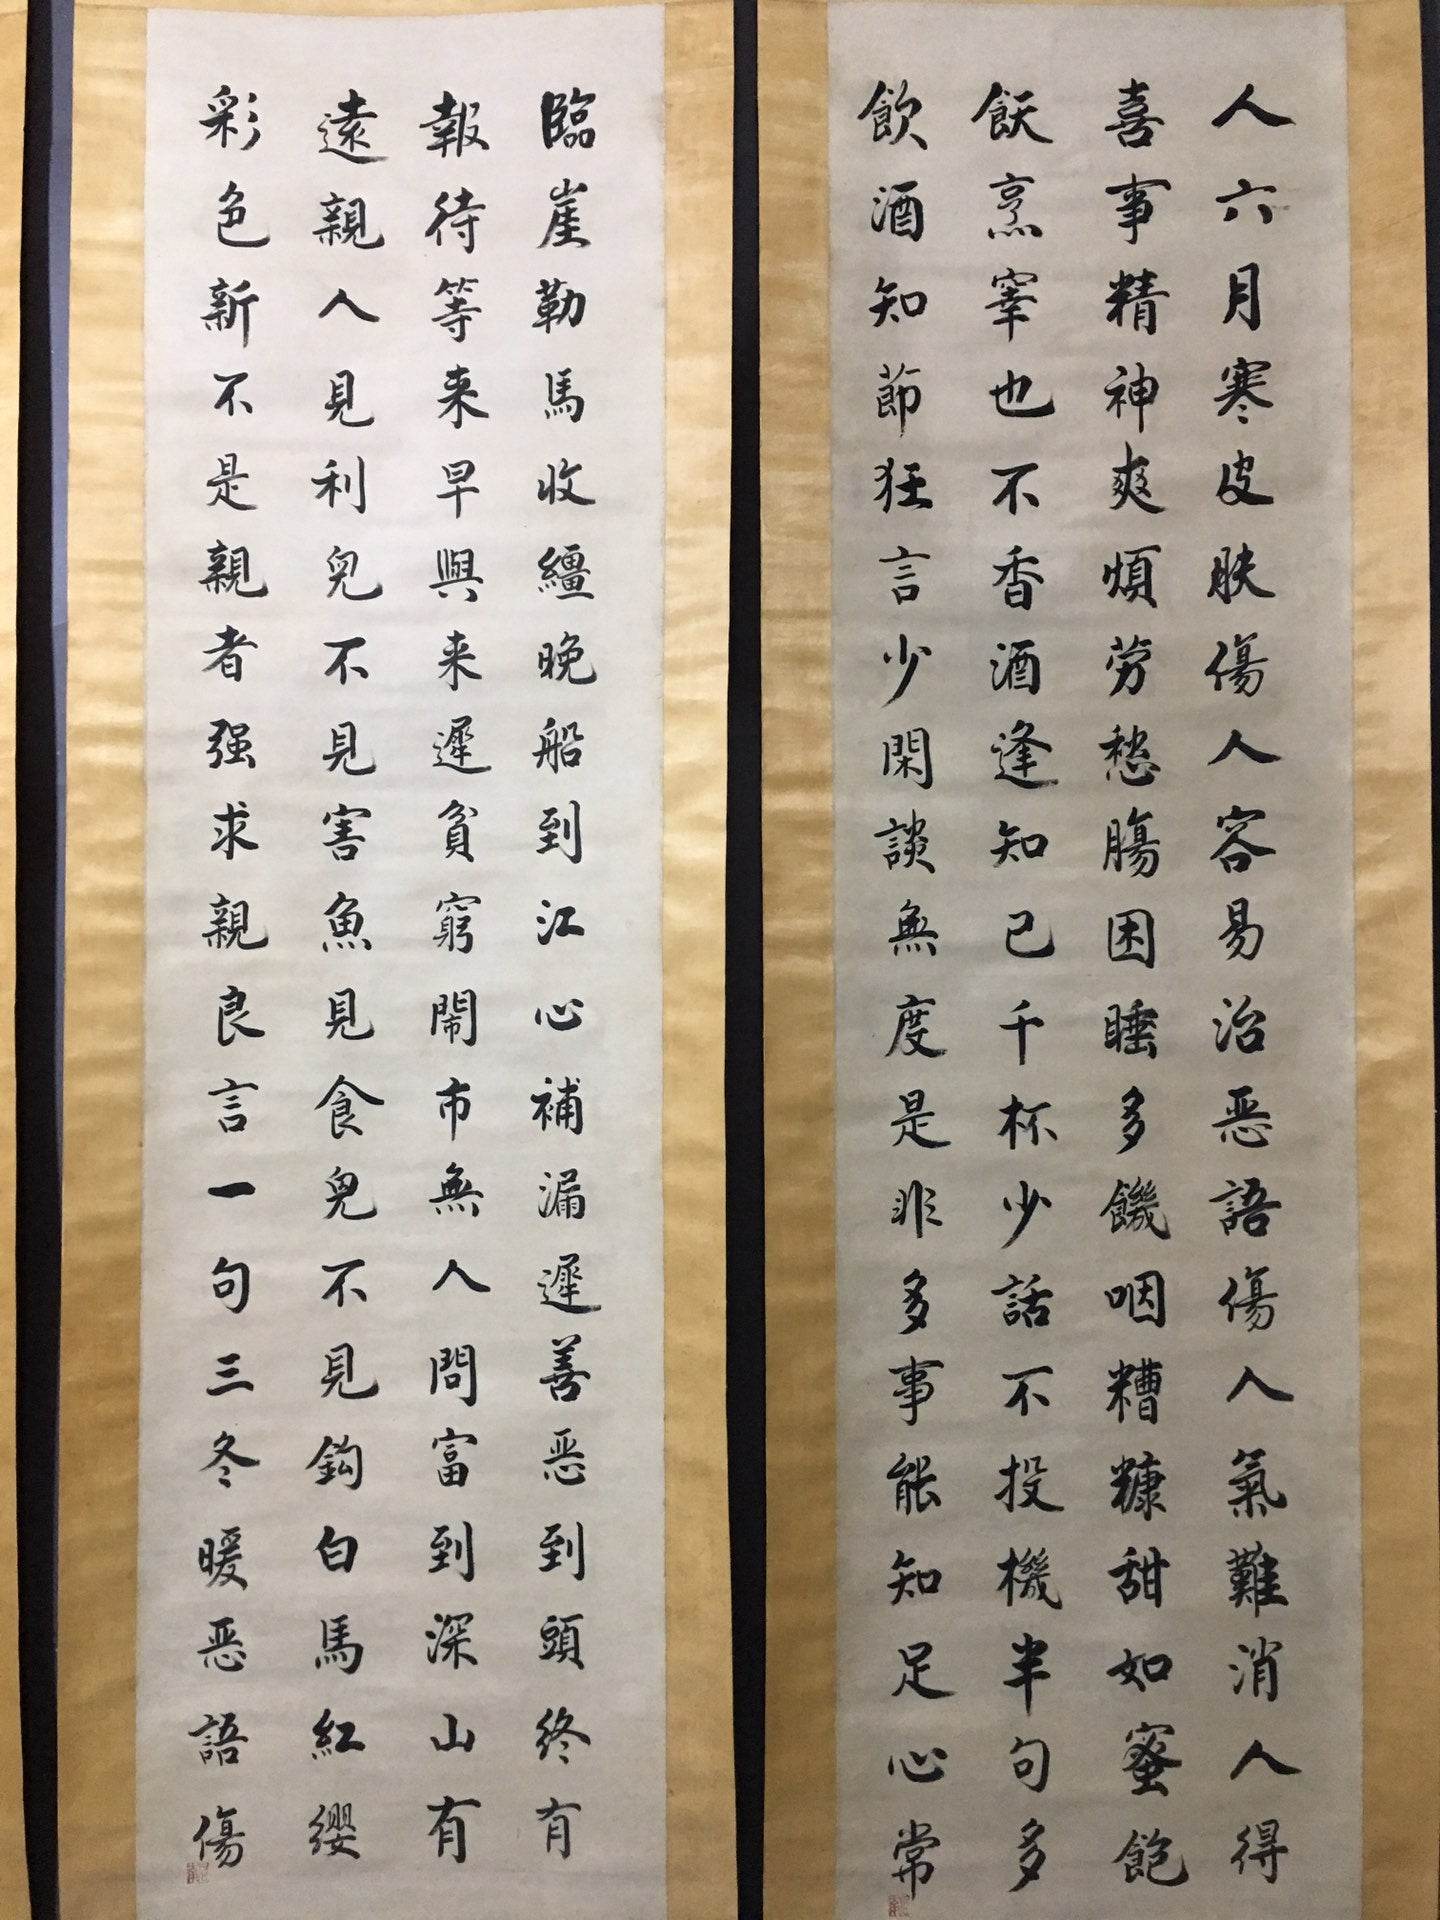 臨崖勒馬收繮晚船到江心補漏遲善恶到頭終有
報待等来早與来遲貧窮鬧市無人問富到深山有
遠親人見利兒不見害魚見食兒不見鈎白馬紅纓
彩色新不是親者强求親良言一句三冬暖恶語傷
人六月寒皮肤傷人容易治恶語傷人氣難消人得
喜事精神爽煩劳愁腸困睡多饑咽糟糠甜如蜜飽
飫烹宰也不香酒逢知己千杯少話不投機半句多
飲酒知節狂言少閑談無度是非多事能知足心常